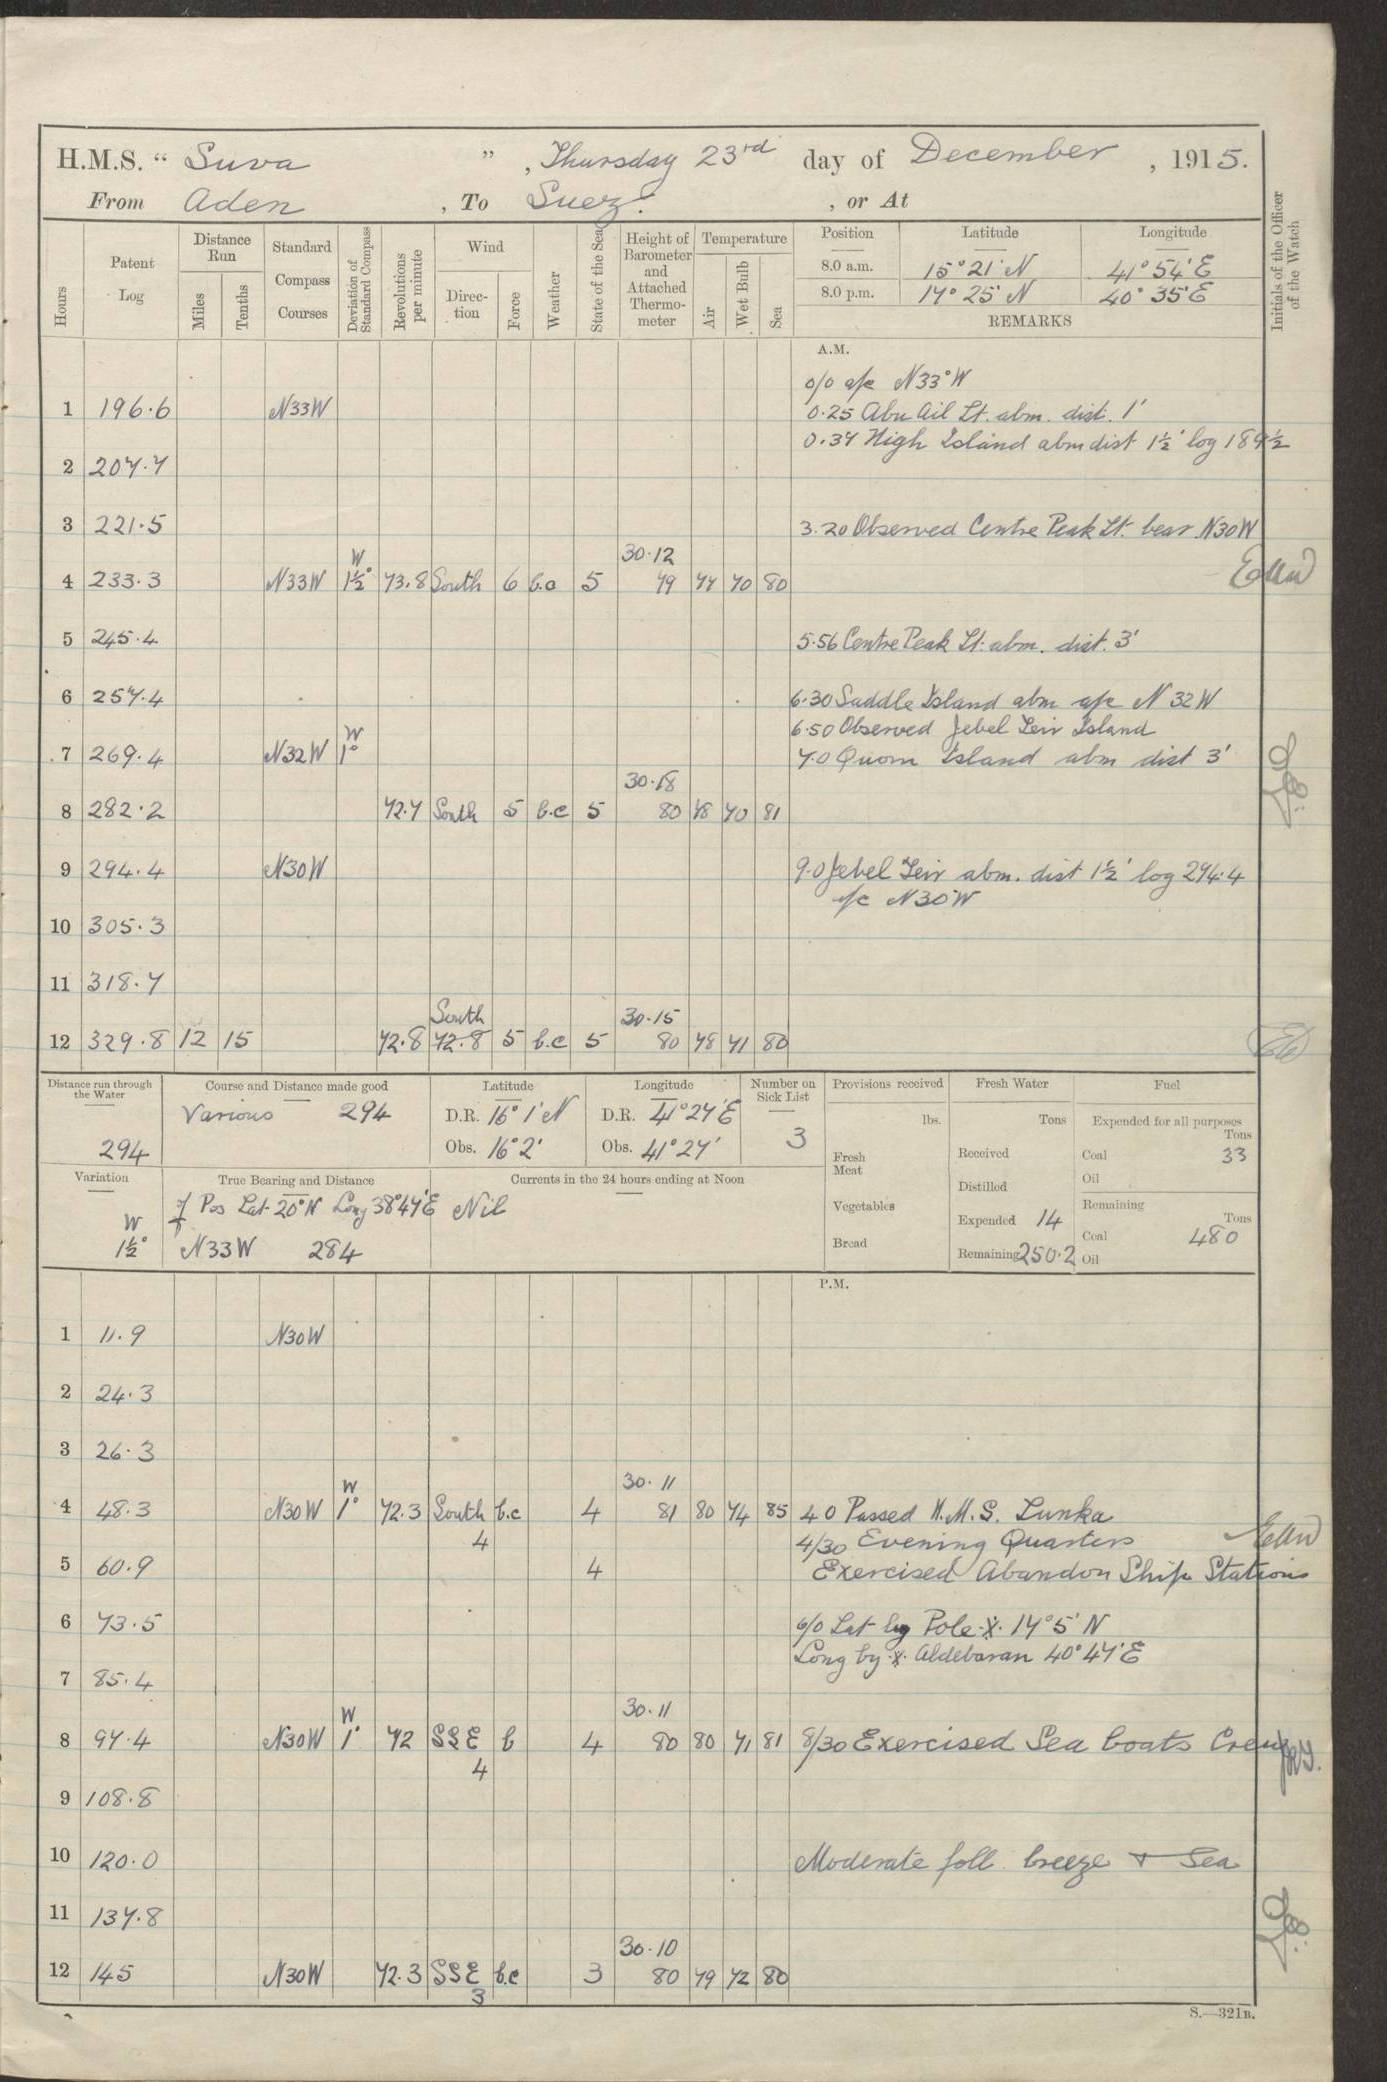 H.M.S. “ Suva ” , Thursday 23rd day of December , 1915.
From Aden , To Suez. , or At
Hours
Patent Log
Distance Run
Miles
Tenths
Standard Compass Courses
Deviation of Standard Compass
Revolutions per minute
Wind
Direc-tion
Force
Weather
State of the Sea
Height of Barometer and Attached Thermo-meter
Temperature
Air
Wet Bulb
Sea
Position Latitude Longitude
8.0 a.m. 15° 21' N 41° 54' E
8.0 p.m. 17° 25' N 40° 35' E
REMARKS
Initials of the Officer of the Watch
A.M.
0/0 a/c N33°W
1 196.6 N33W 0.25 Abu Ail Lt. abm. dist. 1'
0.37 High Island abm dist 1½' log 189½
2 207.7
3 221.5 3.20 Observed Centre Peak Lt. bear N30W
W 30.12
4 233.3 N33W 1½° 73.8 South 6 b.c 5 79 77 70 80
5 245.4 5.56 Centre Peak Lt. abm. dist. 3'
6 257.4 6.30 Saddle Island abm a/c N 32 W
6.50 Observed Jebel Teir Island
W
7 269.4 N32W 1° 7.0 Quoin Island abm dist 3'
30.18
8 282.2 72.7 South 5 b.c 5 80 78 70 81
9 294.4 N30W 9.0 Jebel Teir abm. dist 1½' log 294.4
a/c N30°W
10 305.3
11 318.7
South 30.15
12 329.8 12 15 72.8 72.8 5 b.c 5 80 78 71 80
Distance run through the Water
294
Course and Distance made good
Various 294
Latitude
D.R. 16° 1' N
Obs. 16° 2'
Longitude
D.R. 41° 27' E
Obs. 41° 27'
Number on Sick List
3
Provisions received
lbs.
Fresh Meat
Vegetables
Bread
Fresh Water
Tons
Received
Distilled
Expended 14
Remaining 250.2
Fuel
Expended for all purposes
Tons
Coal 33
Oil
Remaining
Tons
Coal 480
Oil
Variation
W
1½°
True Bearing and Distance
Pos Lat 20°N Long 38°47'E
N33W 284
Currents in the 24 hours ending at Noon
Nil
P.M.
1 11.9 N30W
2 24.3
3 26.3
W 30.11
4 48.3 N30W 1° 72.3 South b.c 4 81 80 74 85 4 0 Passed H.M.S. Lunka
4 4/30 Evening Quarters
5 60.9 4 Exercised Abandon Ship Stations
6 73.5 6/0 Lat by Pole * 17° 5' N
Long by * Aldebaran 40° 47' E
7 85.4
W 30.11
8 97.4 N30W 1° 72 SSE b 4 80 80 71 81 8/30 Exercised Sea boats Crew
4
9 108.8
10 120.0 Moderate foll. breeze & Sea
11 137.8
30.10
12 145 N30W 72.3 SSE b.c 3 80 79 72 80
3
S.—321B.